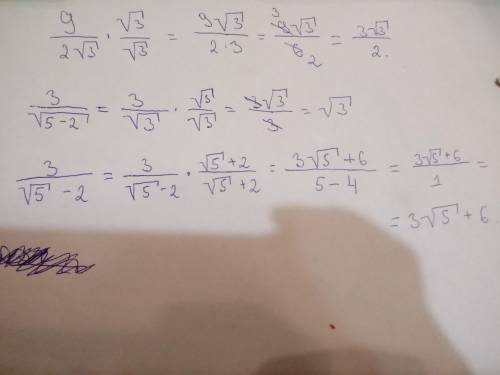 9/(2√3) · √3/√3 = 9√3/(2·3) = 9√3/6 = 3√3/2.
3/√(5-2) = 3/√3 · √5/√3 = 3√3/3 = √3
3/(√5 - 2) = 3/(√5 - 2) · (√5 + 2)/(√5 + 2) = (3√5 + 6)/(5 - 4) = (3√5 + 6)/1 =
= 3√5 + 6.